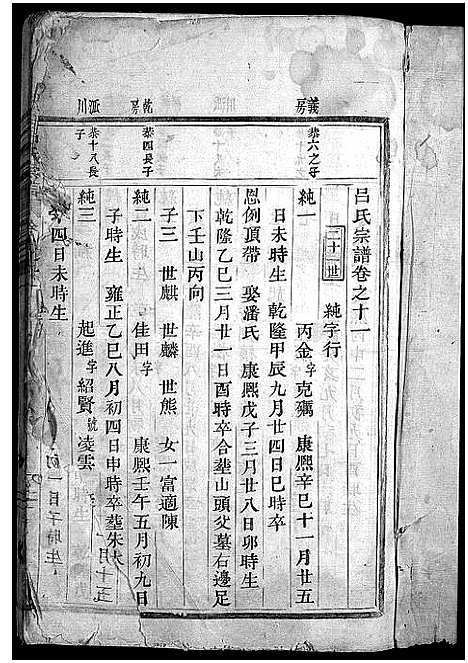 呂氏宗譜卷之十一
二十一世 純字行
義房 恭六之子
純一 丙金 字克礪 康熙辛巳十一月廿五
日未時生 乾隆甲辰九月廿四日巳時卒
恩例頂帶 娶潘氏 康熙戊子三月廿八日卯時生
乾隆乙巳三月廿一日酉時卒合塟山頭父墓右邊足
下壬山丙向
子三 世麒 世麟 世熊 女一富適陳
乾房 恭四長子
純二 佳田 字 康熙壬午五月初九日
子時生 雍正乙巳八月初四日申時卒塟朱大
派川 恭十八長子
純三 起進 字紹賢 號凌雲 月十五
四日未時生 初一日子時生